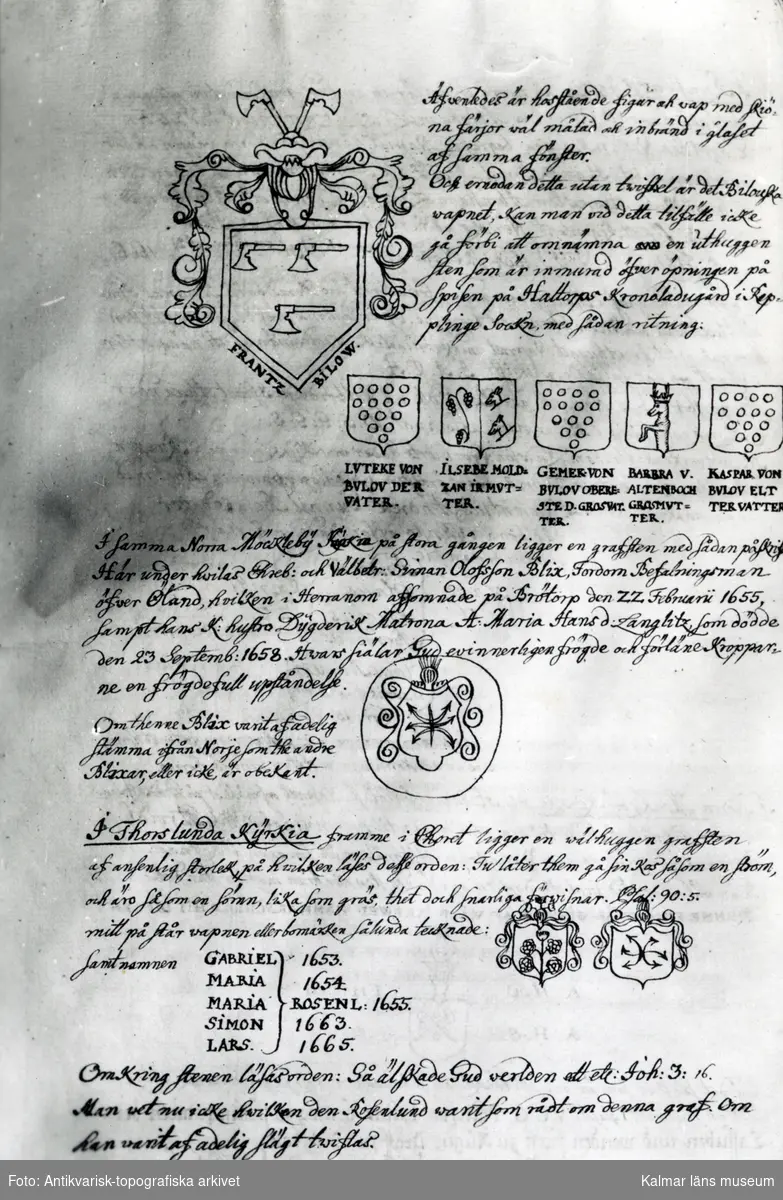 Äfvenledes är hosstående figur ak vap med skiö-
na färjor väl målad ok inbränd i glaset
af samma fönster.
Och emedan detta utan twifvel är det Bilouska
vapnet, kan man vid detta tilfälle icke
gå förbi att omnämna en uthuggen
sten som är inmurad öfver öpningen på
spisen på Haltorps Kronoladugård i Rep-
plinge Sockn, med sådan ritning:
FRANTZ BILOW.
LVTEKE VON
BVLOV DER
VATER.
ILSEBE MOLD=
ZAN IR MVT=
TER.
GEMER VON
BVLOV OBERE=
STE D. GROSVAT.
TER.
BARBRA V.
ALTENBOCH
GROSMVT=
TER.
KASPAR VON
BVLOV ELT
TER VATTER
I samma Norra Möckleby Kyrkia på stora gången ligger en grafsten med sådan påskrif
Här under hvilas Ehreb: och Välbetr: Svinan Olofsson Blix, Fordom Befalningsman
öfver Öland, hvilken i Herranom afsomnade på Brötorp den 22 Februarii 1655,
sampt hans K: hustro Dygderik Matrona A: Maria Hans d: Langlitz, som dödde
den 23 Septemb: 1658. Hvars siälar Gud evinnerligen frögde och förläne Kroppar-
ne en frögdefull upståndelse.
Om thenne Blix varit af adelig
stämma ifrån Norje som the andre
Blixar, eller icke, är obekant.
I Thorslunda Kyrkia framme i Choret ligger en wälhuggen grafsten
af ansenlig storlek, på hvilken läses desse orden: Tu låter them gå sin kos såsom en ström,
och äro så som en sömn, lika som gräs, thet doch snarliga förvisnar. Psal: 90: 5.
mitt på står vapnen eller bomärken sålunda tecknade:
samt namnen
GABRIEL 1653.
MARIA 1654.
MARIA ROSENL: 1655.
SIMON 1663.
LARS. 1665.
Omkring stenen läsas orden: Så älskade Gud verlden att etc: Joh: 3: 16.
Man vet nu icke hvilken den Rosenlund varit som rådt om denna graf. Om
han varit af adelig slägt twistas.
Foto: Antikvarisk-topografiska arkivet
Kalmar läns museum